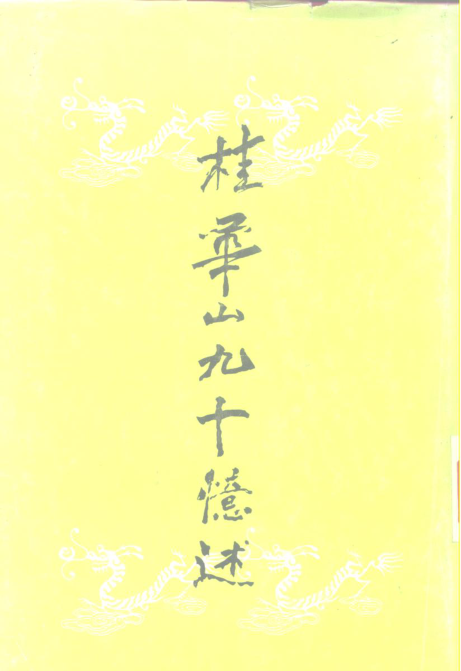 桂華山九十憶述